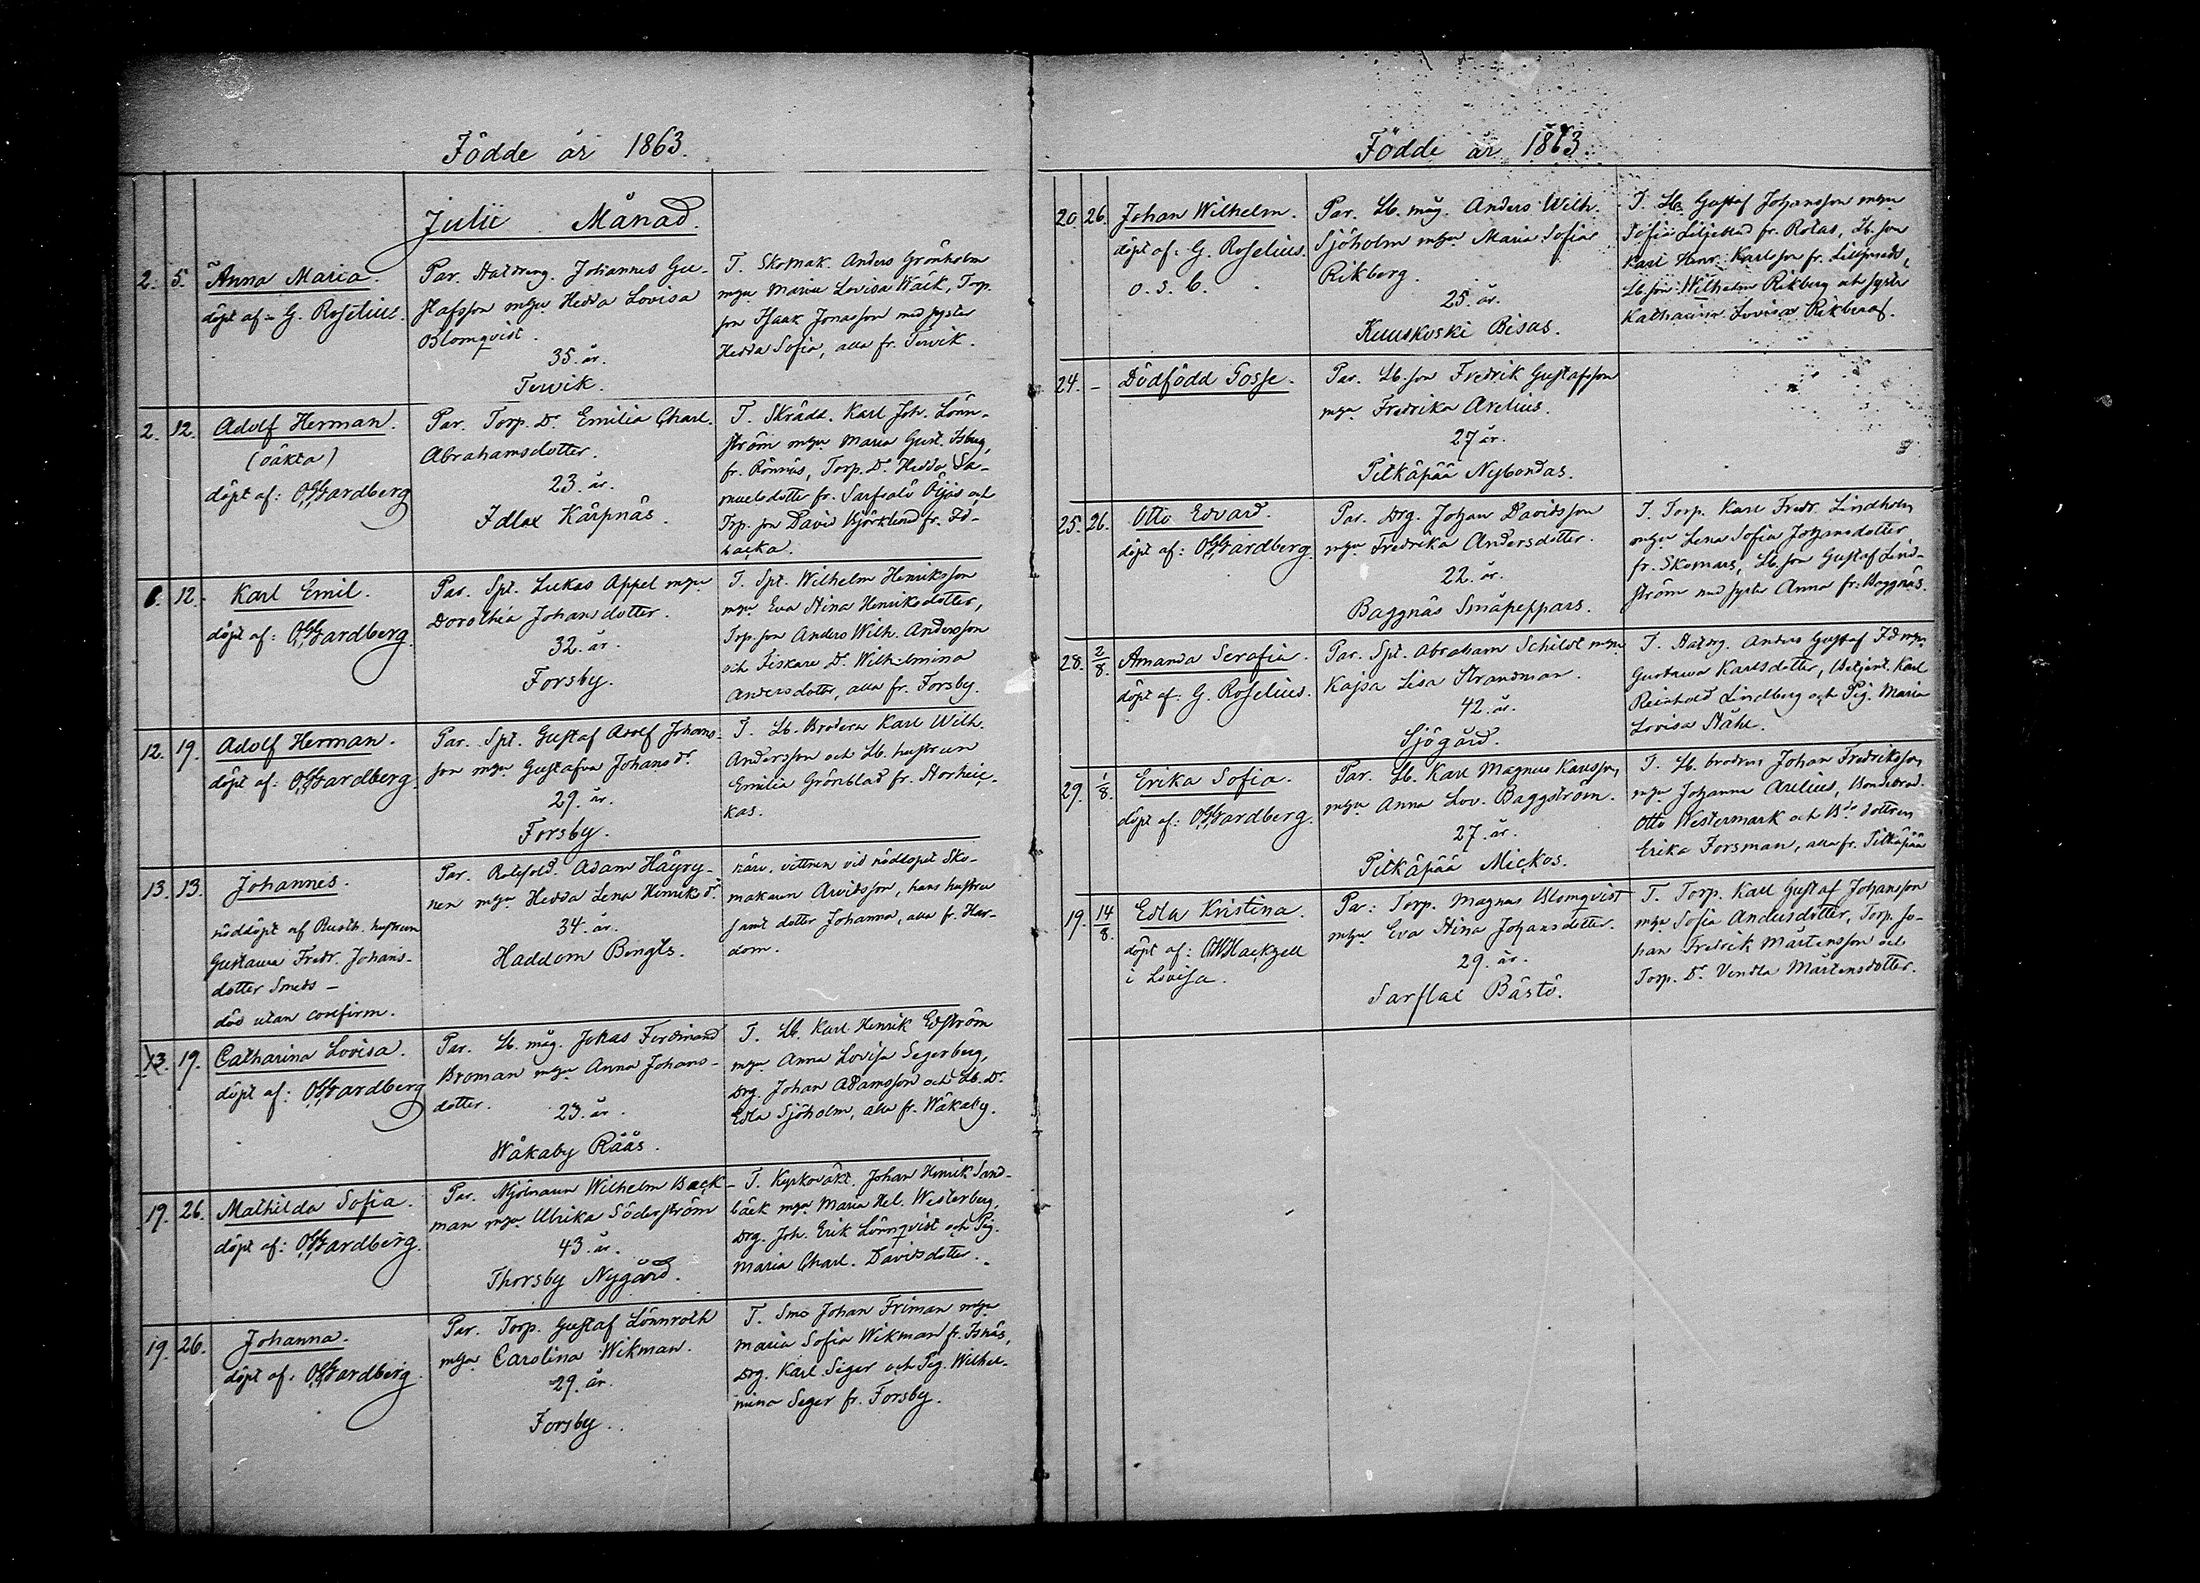 Födde år 1863.
Julii Månad.
2. 5. Anna Maria.
döpt af - G. Roselius.
Par. Johannes Gu-
stafsson mgn Hedda Lovisa
Blomqvist.
35. år.
Tervik.
T. Skomak. Anders Grönholm
mgn Maria Lovisa Wäck, Torp.
son Isaak Jonasson med syster
Hedda Sofia, alla fr. Tervik.
2. 12. Adolf Herman.
(oäkta)
döpt af: Gardberg
Par. Torp. Dr. Emilia Charl.
Abrahamsdotter.
23. år.
Idlax Kärpnäs.
T. Skrädd. Karl Joh. Lönn-
ström mgn Maria Gust. Isberg,
fr. Rönnäs, Torp. Dr. Hedda Sa-
muelsdotter fr. Sarfsalö Öijus och
Trp. son David Björklund fr. Id-
backa.
6. 12. Karl Emil.
döpt af: Gardberg
Par. Spt. Lukas Appel mgn
Dorothéa Johansdotter.
32. år.
Forsby.
T. Spt. Wilhelm Henriksson
mgn Eva Stina Henriksdotter,
Torp. son Anders Wilh. Andersson
och Fiskare Dr. Wilhelmina
Andersdotter, alla fr. Forsby.
12. 19. Adolf Herman.
döpt af: Gardberg.
Par. Spt. Gustaf Adolf Johans-
son mgn Gustafva Johansdr.
29. år.
Forsby.
T. Lb. Brodern Karl Wilh.
Andersson och Lb. hustrun
Emilia Grönblad fr. Storhei-
kas.
13. 13. Johannes.
nöddöpt af Rusth. hustrun
Gustawa Fredr. Johans-
dotter Smeds -
död utan confirm.
Par. Adam Häyry-
nen mgn Hedda Lena Henriksdr
34. år.
Haddom Bengts.
närv. vittnen vid nöddopet Sko-
makaren Arvidsson, hans hustru
samt dotter Johanna, alla fr. Had-
dom.
13. 19. Catharina Lovisa.
döpt af: Gardberg
Par. Lb. måg. Johas Ferdinand
Broman mgn Anna Johans-
dotter.
23. år.
Wåkaby Rääs.
T. Lb. Karl Henrik Edström
mgn Anna Lovisa Segerberg,
Drg. Johan Adamsson och Lb. Dr.
Edla Sjöholm, alla fr. Wåkaby.
19. 26. Mathilda Sofia.
döpt af: Gardberg.
Par. Mjölnaren Wilhelm Back-
man mgn Ulrika Söderström
43. år.
Thorsby Nygård.
T. Kyrkovakt. Johan Henrik Sand-
bäck mgn Maria Hel. Westerberg,
Drg. Joh. Erik Lönnqvist och Pig.
Maria Charl. Davidsdotter.
19. 26. Johanna.
döpt af. Gardberg.
Par. Torp. Gustaf Lönnroth
mgn Carolina Wikman.
29. år.
Forsby.
T. Smd Johan Friman mgn
Maria Sofia Wikman fr. Isnäs,
Drg. Karl Seger och Pig. Wilhel-
mina Seger fr. Forsby.
Födde år 1863.
20. 26. Johan Wilhelm.
döpt af: G. Roselius.
o. s. b.
Par. Lb. måg. Anders Wilh.
Sjöholm mgn Maria Sofia
Rikberg.
25. år.
Kuuskoski Bisas.
T. Lb. Gustaf Johansson mgn
Sofia Liljeblad fr. Lb. son
Karl Henr. Karlsson fr.
Lb. son Wilhelm Rikberg och syster
Katharina Lovisa Rikberg.
24. - Dödfödd Gosse.
Par. Lb. son Fredrik Gustafsson
mgn Fredrika Arelius.
27 år.
Pitkäpää Nybondas.
25. 26. Otto Edvard.
döpt af: Gardberg.
Par. Drg. Johan Davidsson
mgn Fredrika Andersdotter.
22. år.
Baggnäs Småpeppars.
T. Torp. Karl Fredr. Lindholm
mgn Lena Sofia Johansdotter
fr. Skomars, Lb. son Gustaf Lind-
ström med syster Anna fr. Baggnäs.
28. 2/8. Amanda Serafia.
döpt af: G. Roselius.
Par. Spt. Abraham Schildt mgn
Kajsa Lisa Strandman.
42. år.
Sjögård.
T. Anders Gustaf Id mgn
Gustawa Karlsdotter, Betjent. Karl
Reinhold Lindberg och Pig. Maria
Lovisa Ståhl.
29. 1/8. Erika Sofia.
döpt af: Gardberg.
Par. Lb. Karl Magnus Karlsson
mgn Anna Lov. Baggström.
27. år.
Pitkäpää Mickos.
T. Lb. brodren Johan Fredriksson
mgn Johanna Arelius, Bondebrod.
Otto Westermark och Bde dottren
Erika Forsman, alla fr. Pitkäpää
19. 14/8. Edla Kristina.
döpt af: Hackzell
i Lovisa.
Par: Torp. Magnus Blomqvist
mgn Eva Stina Johansdotter.
29. år.
Sarflax Bästö.
T. Torp. Karl Gustaf Johansson
mgn Sofia Andersdotter, Torp. Jo-
han Fredrik Mårtensson och
Torp. Dr. Vendla Mårtensdotter.